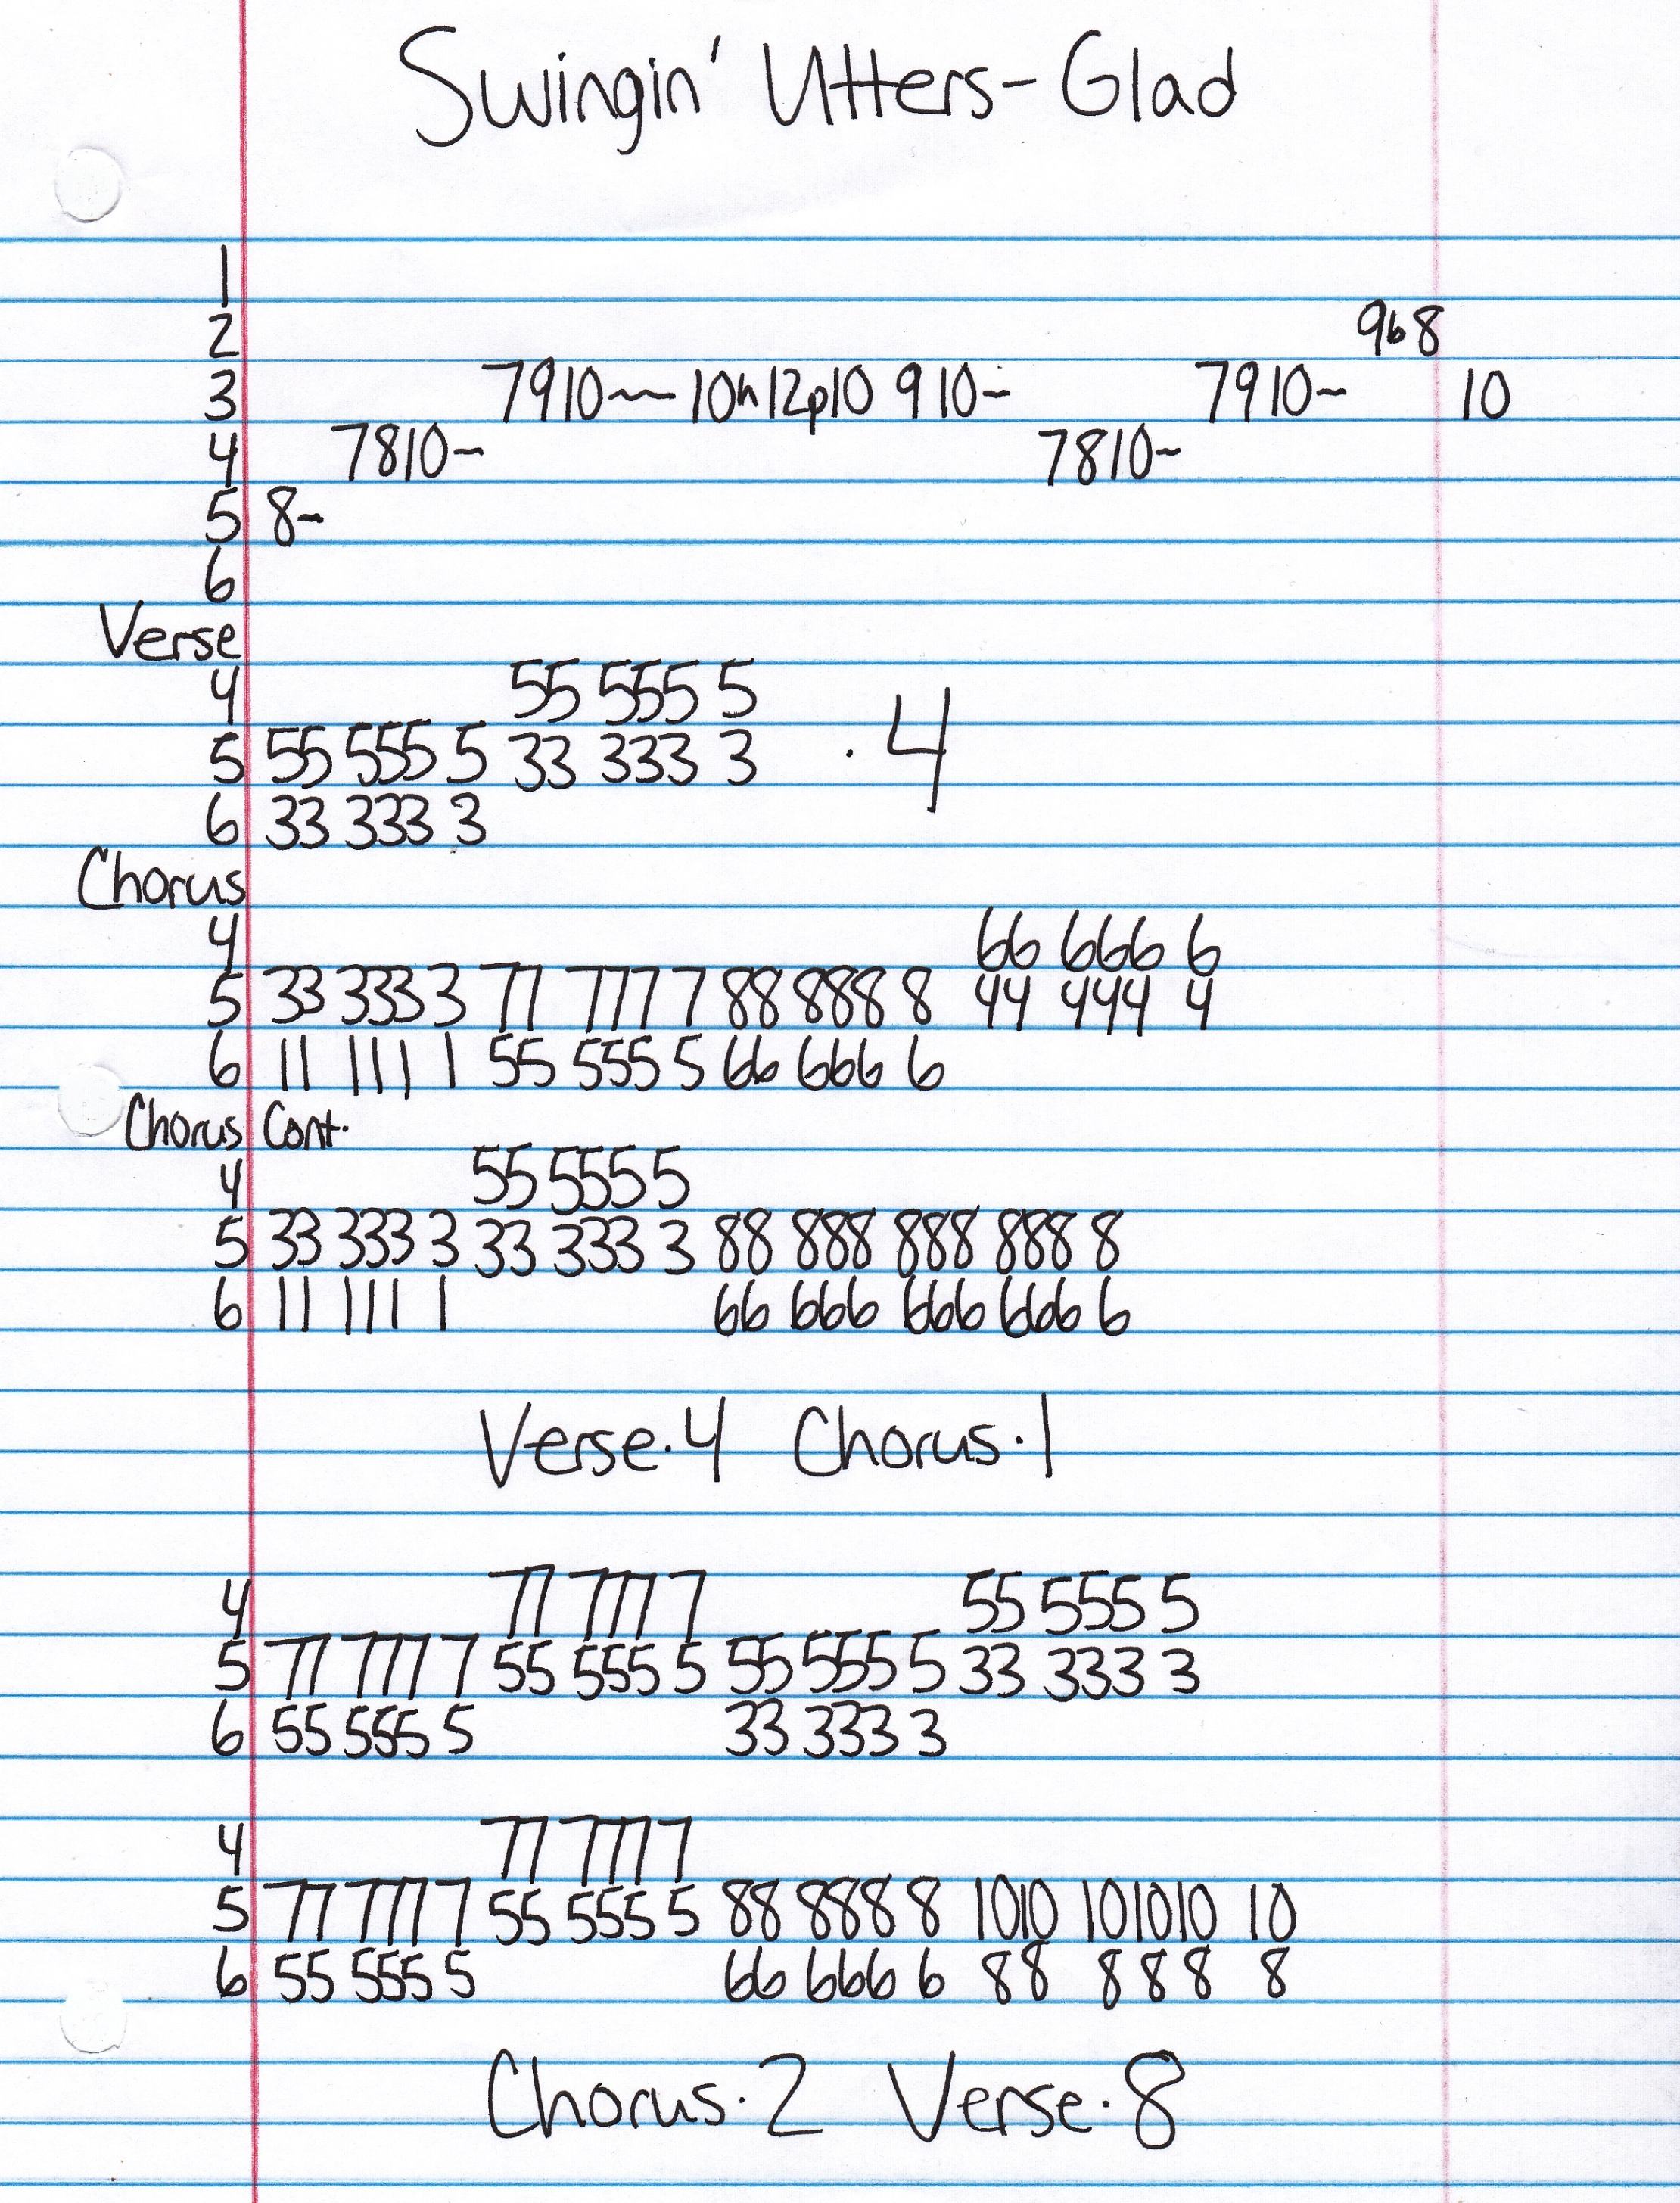 Swingin' Utters - Glad
1
2 9b8
3 7910~~ 10h12p10 9 10~ 7910~ 10
4 7810~ 7810~
5 8~
6
Verse
4 55 555 5
5 55 555 5 33 333 3 · 4
6 33 333 3
Chorus
4 66 666 6
5 33 333 3 77 777 7 88 888 8 44 444 4
6 11 111 1 55 555 5 66 666 6
Chorus Cont.
4 55 555 5
5 33 333 3 33 333 3 88 888 888 888 8
6 11 111 1 66 666 666 666 6
Verse·4 Chorus·1
4 77 777 7 55 555 5
5 77 777 7 55 555 5 55 555 5 33 333 3
6 55 555 5 33 333 3
4 77 777 7
5 77 777 7 55 555 5 88 888 8 1010 101010 10
6 55 555 5 66 666 6 88 888 8
Chorus·2 Verse·8